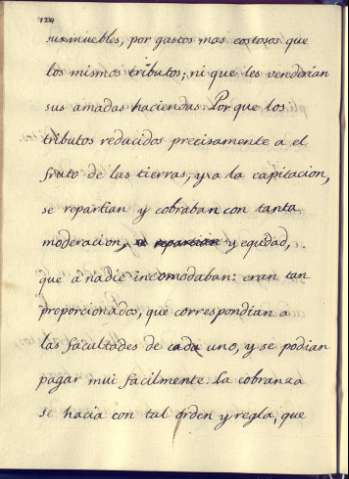 124
sus muebles, por gastos mas costosos que
los mismos tributos; ni que les venderian
sus amadas haciendas. Porque los
tributos redacidos precisamente a el
fruto de las tierras, y a la capitacion,
se repartian y cobraban con tanta
moderacion, y equidad,
que a nadie incomodaban: eran tan
proporcionados, que correspondian a
las facultades de cada uno, y se podian
pagar mui facilmente. La cobranza
se hacia con tal orden y regla, que